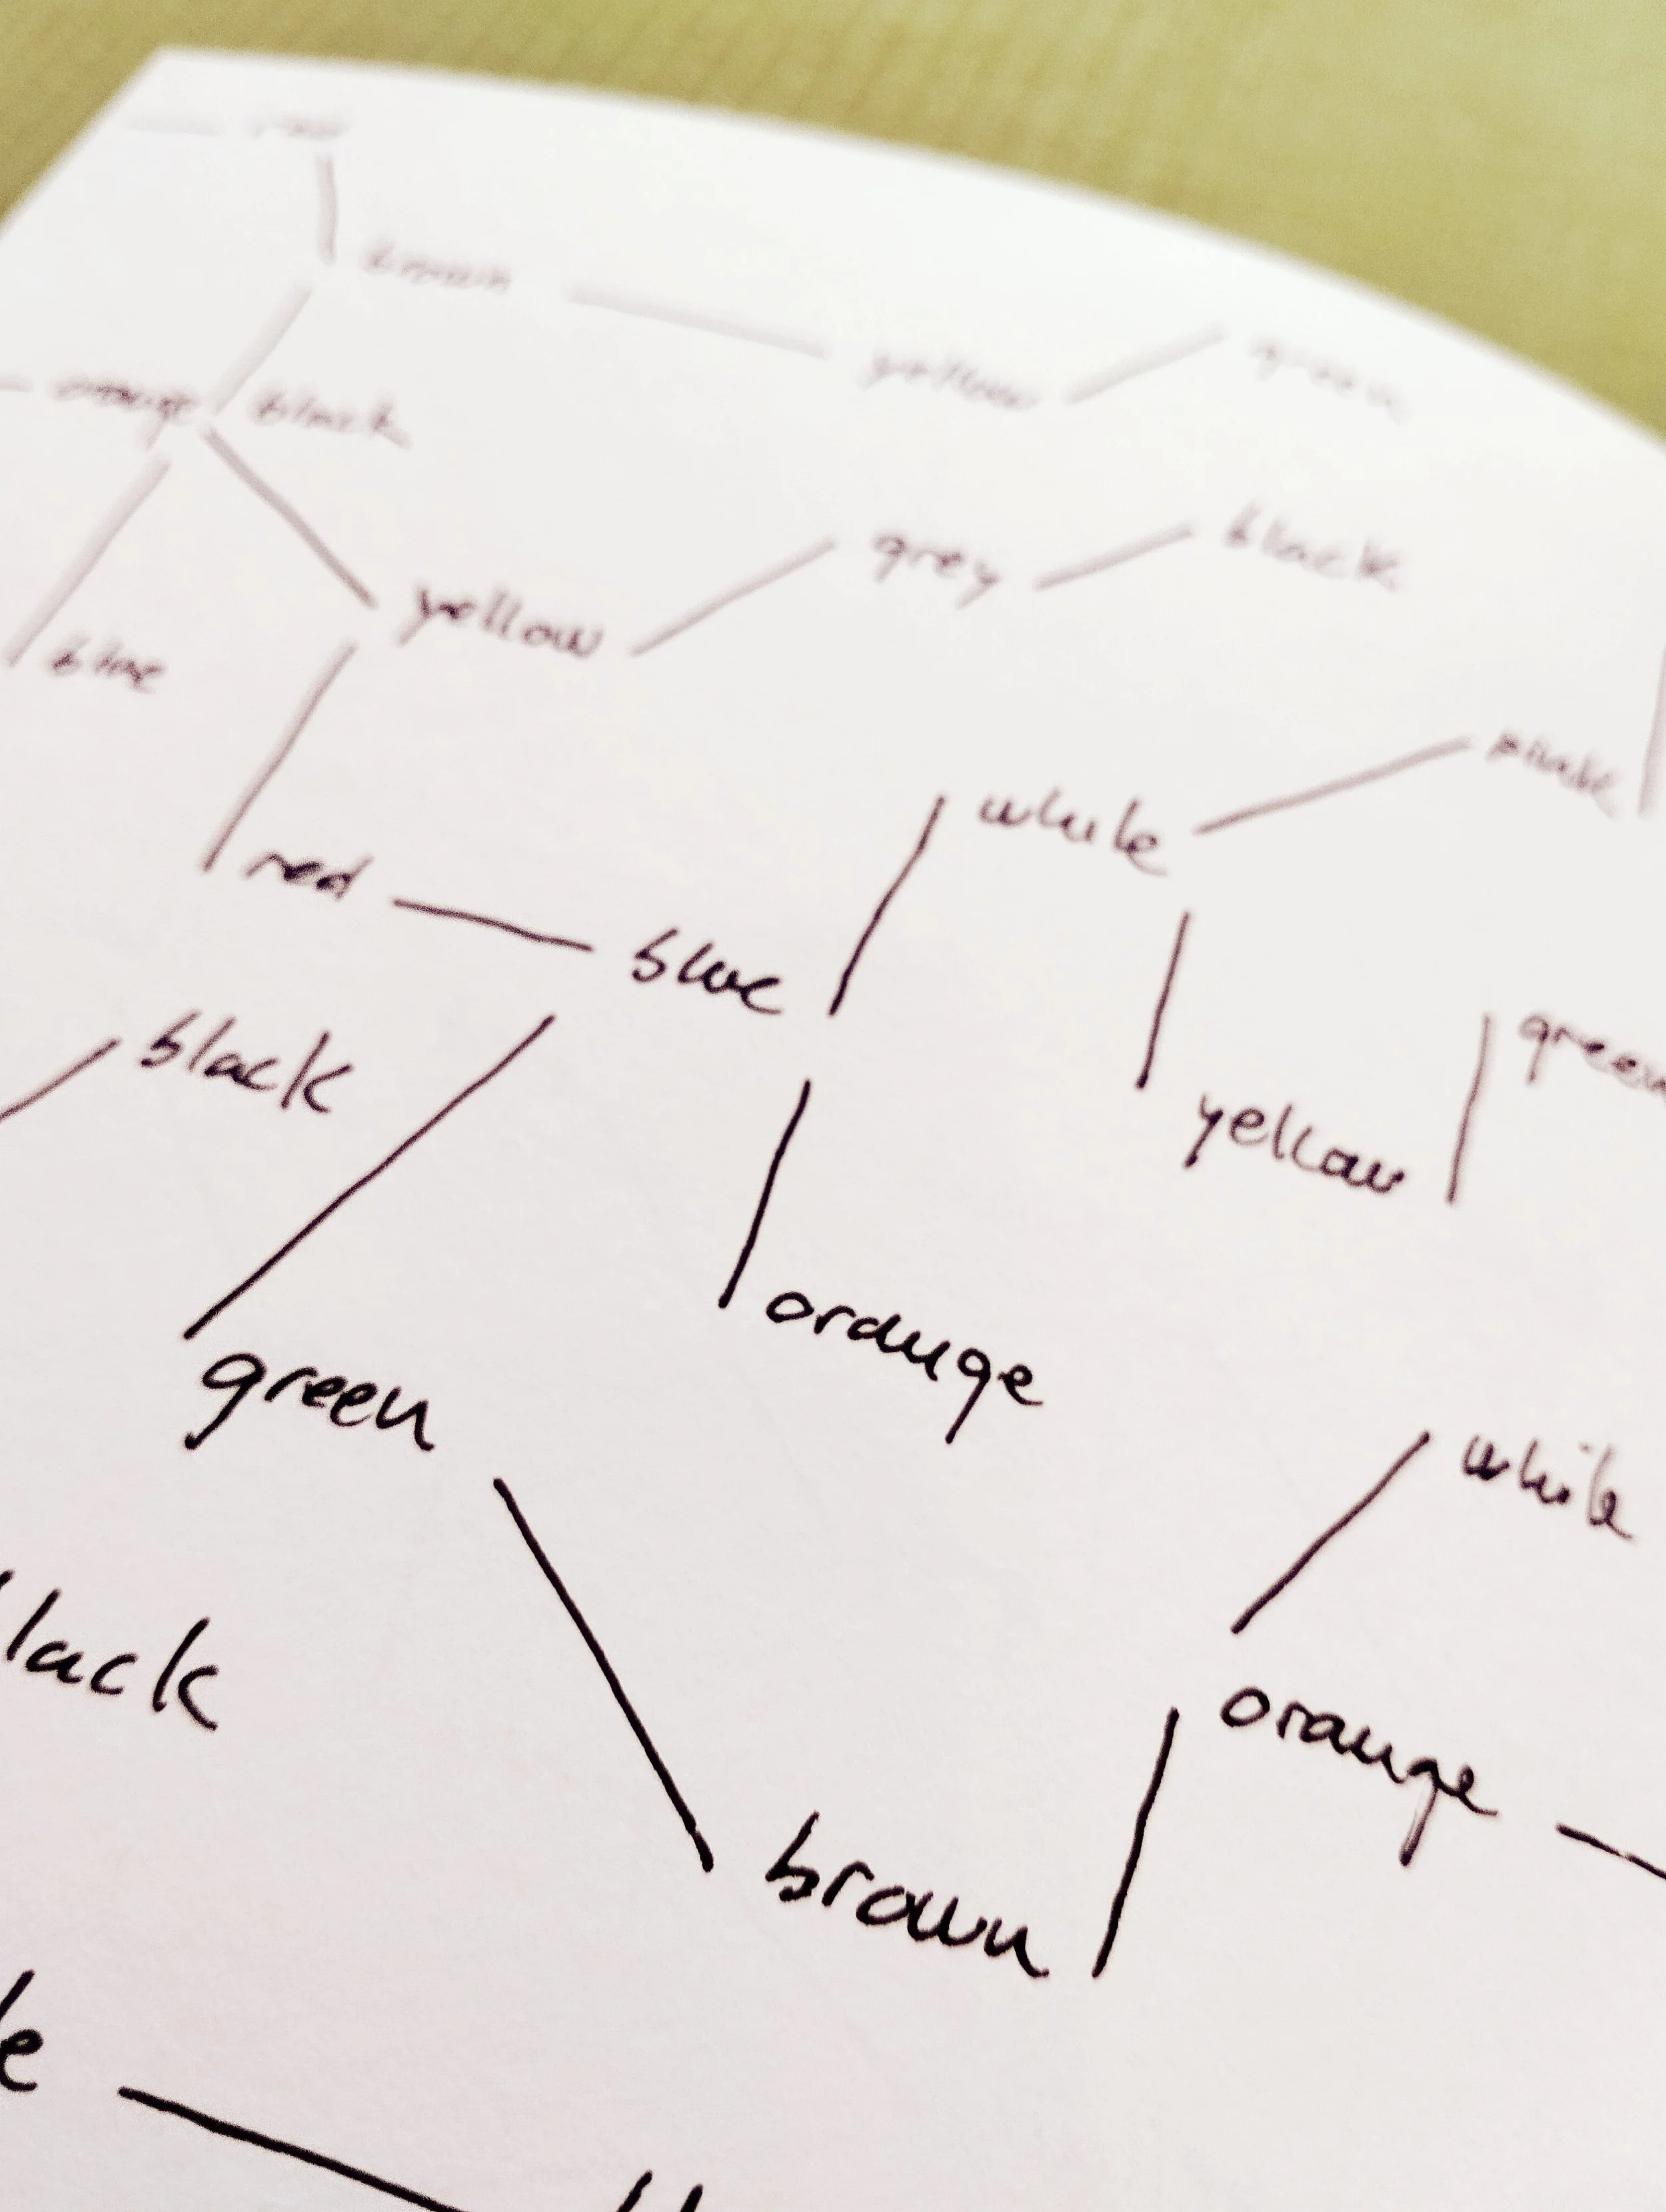 red
brown
yellow
green
orange
black
grey
black
yellow
blue
pink
white
red
blue
green
black
yellow
orange
green
white
lack
orange
brown